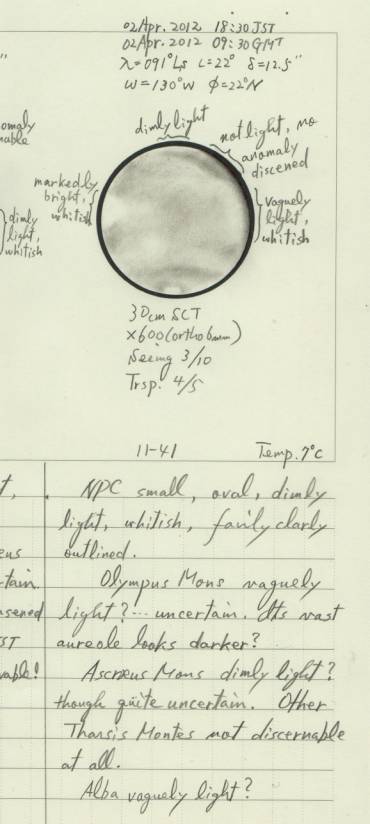 02 Apr. 2012 18:30 JST
02 Apr. 2012 09:30 GMT
λ=091°Ls ι=22° δ=12.5"
ω=130°W φ=22°N
"
omaly
nable
dimly light
not light, no
anomaly
discened
markedly
bright,
whitish
vaguely
light,
whitish
dimly
light,
whitish
30cm SCT
×600 (ortho 6mm)
Seeing 3/10
Trsp. 4/5
11-41
Temp. 7°C
t,
eus
tain.
sened
ST
vable!
NPC small, oval, dimly
light, whitish, fairly clarly
outlined.
Olympus Mons vaguely
light?... uncertain. Its vast
aureole looks darker?
Ascræus Mons dimly light?
though quite uncertain. Other
Tharsis Montes not discernable
at all.
Alba vaguely light?